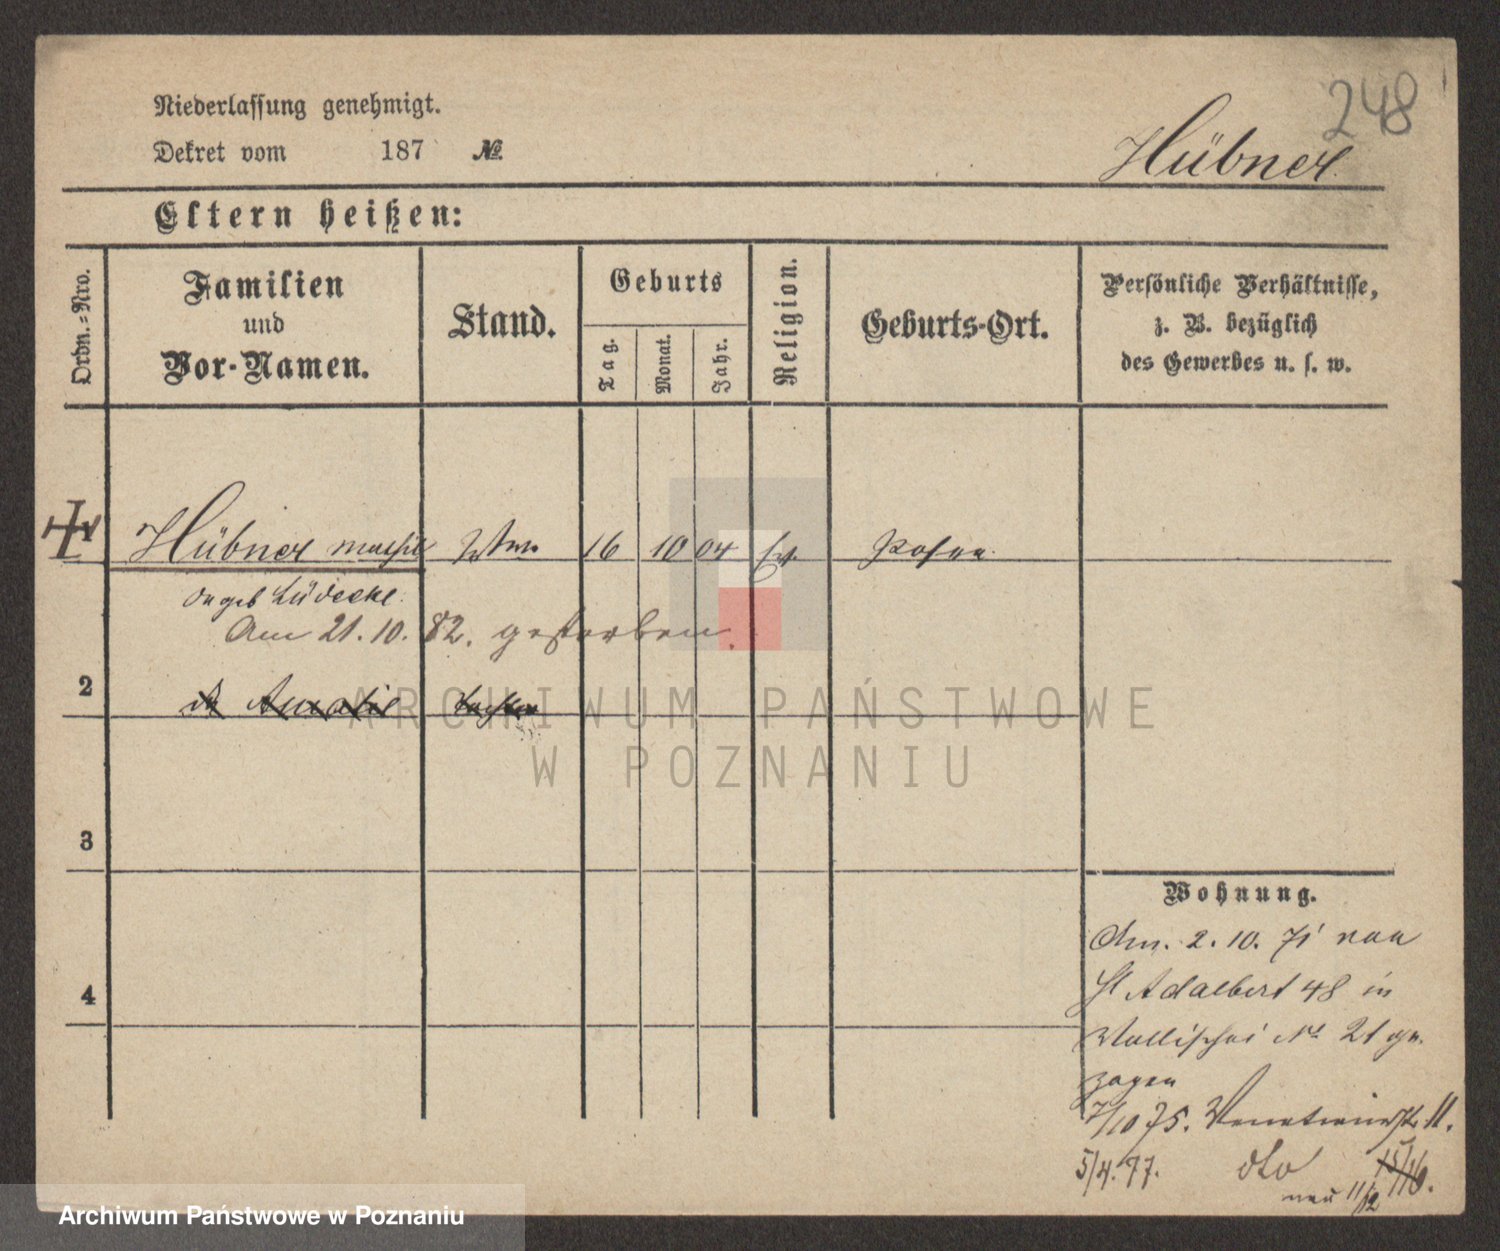 248
Niederlassung genehmigt.
Dekret vom 187 №
Hübner
Eltern heißen:
Ordn.-Nro.
Familien
und
Vor-Namen.
Stand.
Geburts
Tag.
Monat.
Jahr.
Religion.
Geburts-Ort.
Persönliche Verhältnisse,
z. B. bezüglich
des Gewerbes u. s. w.
Hübner Wwe. 16 10 04 Ev. Posen
geb Lüdecke.
Am 21. 10. 82. gestorben.
2 Amalie Tochter
3
4
Wohnung.
Am. 2. 10. 71 von
St Adalbert 48 in
Wallischei № 21 ge-
zogen
7/10 75. Venetianerstr 11.
5/4. 77. dto 15/16.
neu 11/12
ARCHIWUM PAŃSTWOWE
W POZNANIU
Archiwum Państwowe w Poznaniu